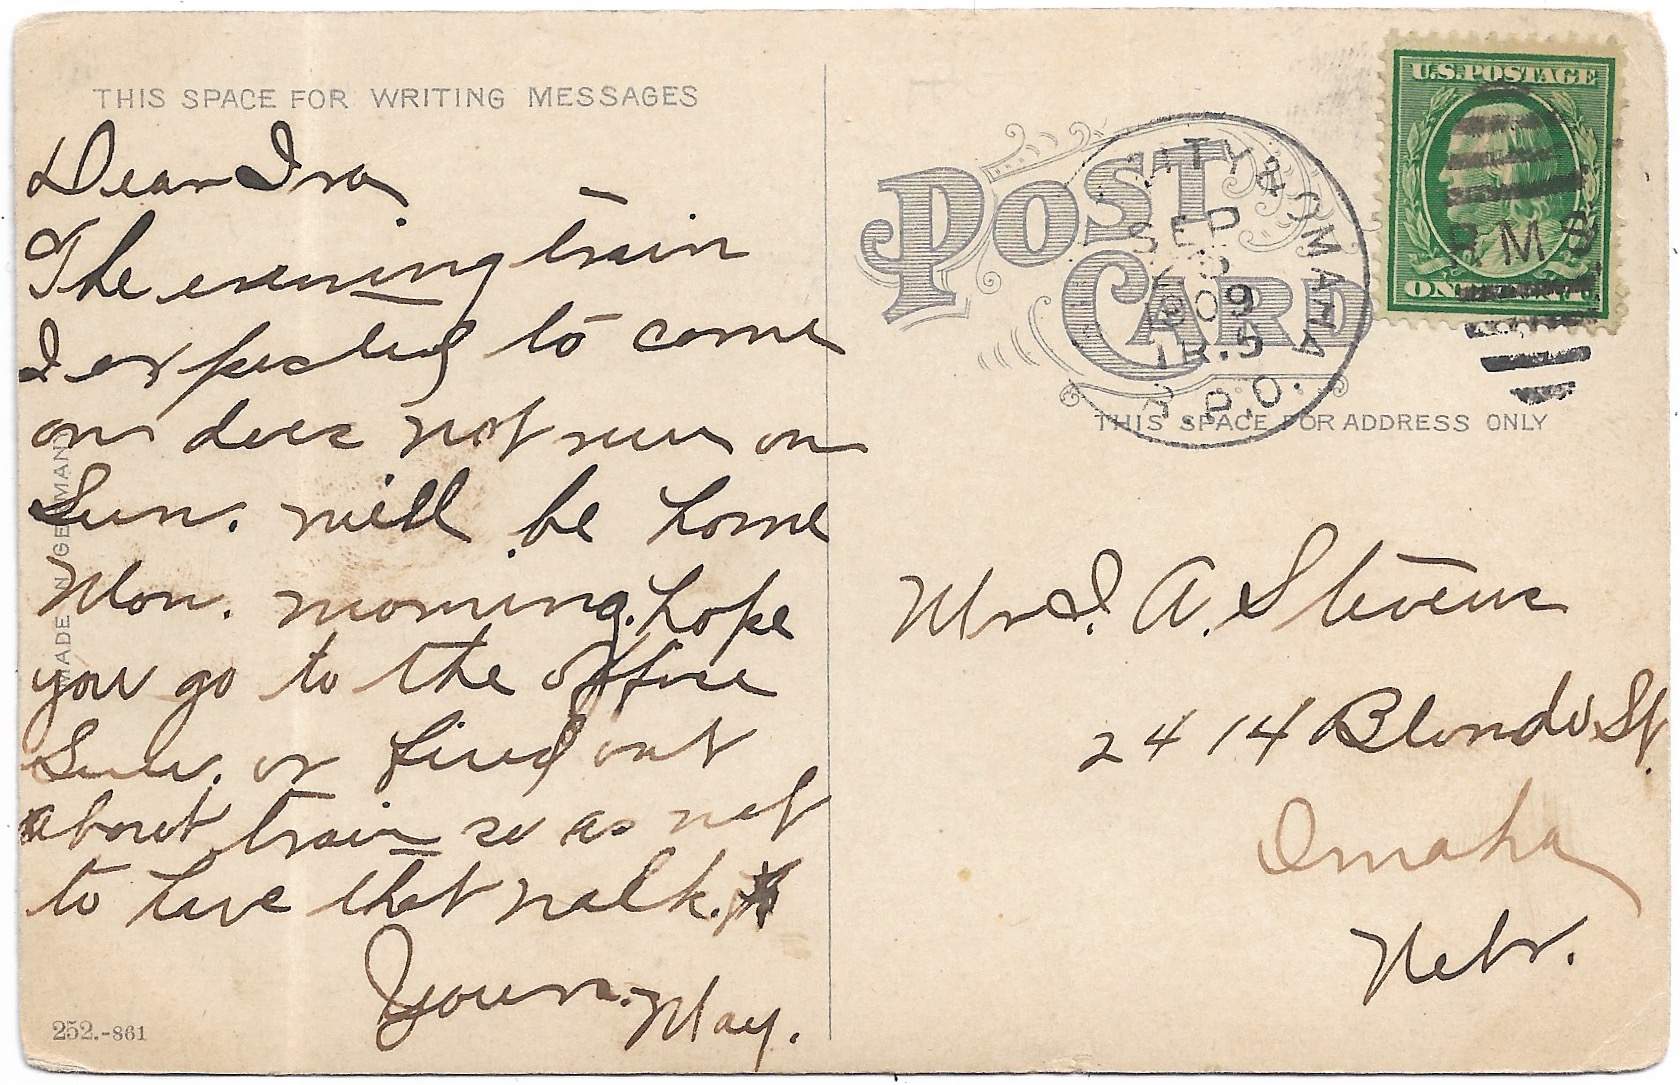 THIS SPACE FOR WRITING MESSAGES
Dear Ira,
The evening train
I expected to come
on does not run on
Sun. will be home
Mon. morning. hope
you go to the office
Sun. or find out
about train so as not
to have that walk.
Yours. May.
MADE IN GERMANY
252.-861
POST CARD
THIS SPACE FOR ADDRESS ONLY
ITY & OMAHA
SEP
5
09
TR.5
R.P.O.
U.S.POSTAGE
RMS
Mr. I. A. Stevens
2414 Blondo St.
Omaha
Nebr.